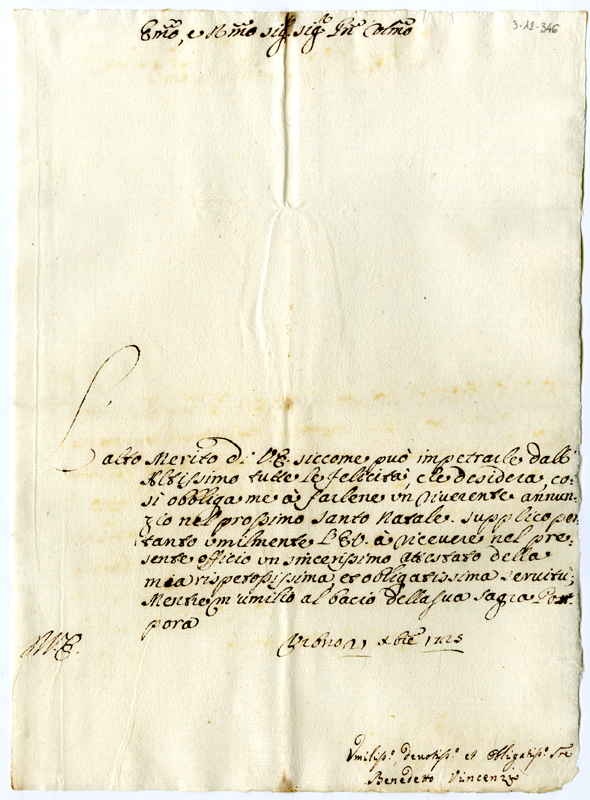 3-12-346
Emo, e Rmo Sigr. Sigr. Pne Colmo
L'alto Merito di V.E. siccome può impetrarle dall'
Altissimo tutte le felicità, che desidera, co-
sì obbliga me à farlene un riverente annun-
zio nel prossimo Santo Natale. Supplico per
tanto umilmente l'E.V. à ricevere nel pre-
sente officio un sincerissimo atestato della
mia rispetosissima, et obligatissima servitù;
Mentre m'umilio al bacio della sua Sagra Por-
pora
Xbre 1725
Umiliss.o devotiss.o et obligatiss.o Sre
Benedetto Vincenzi